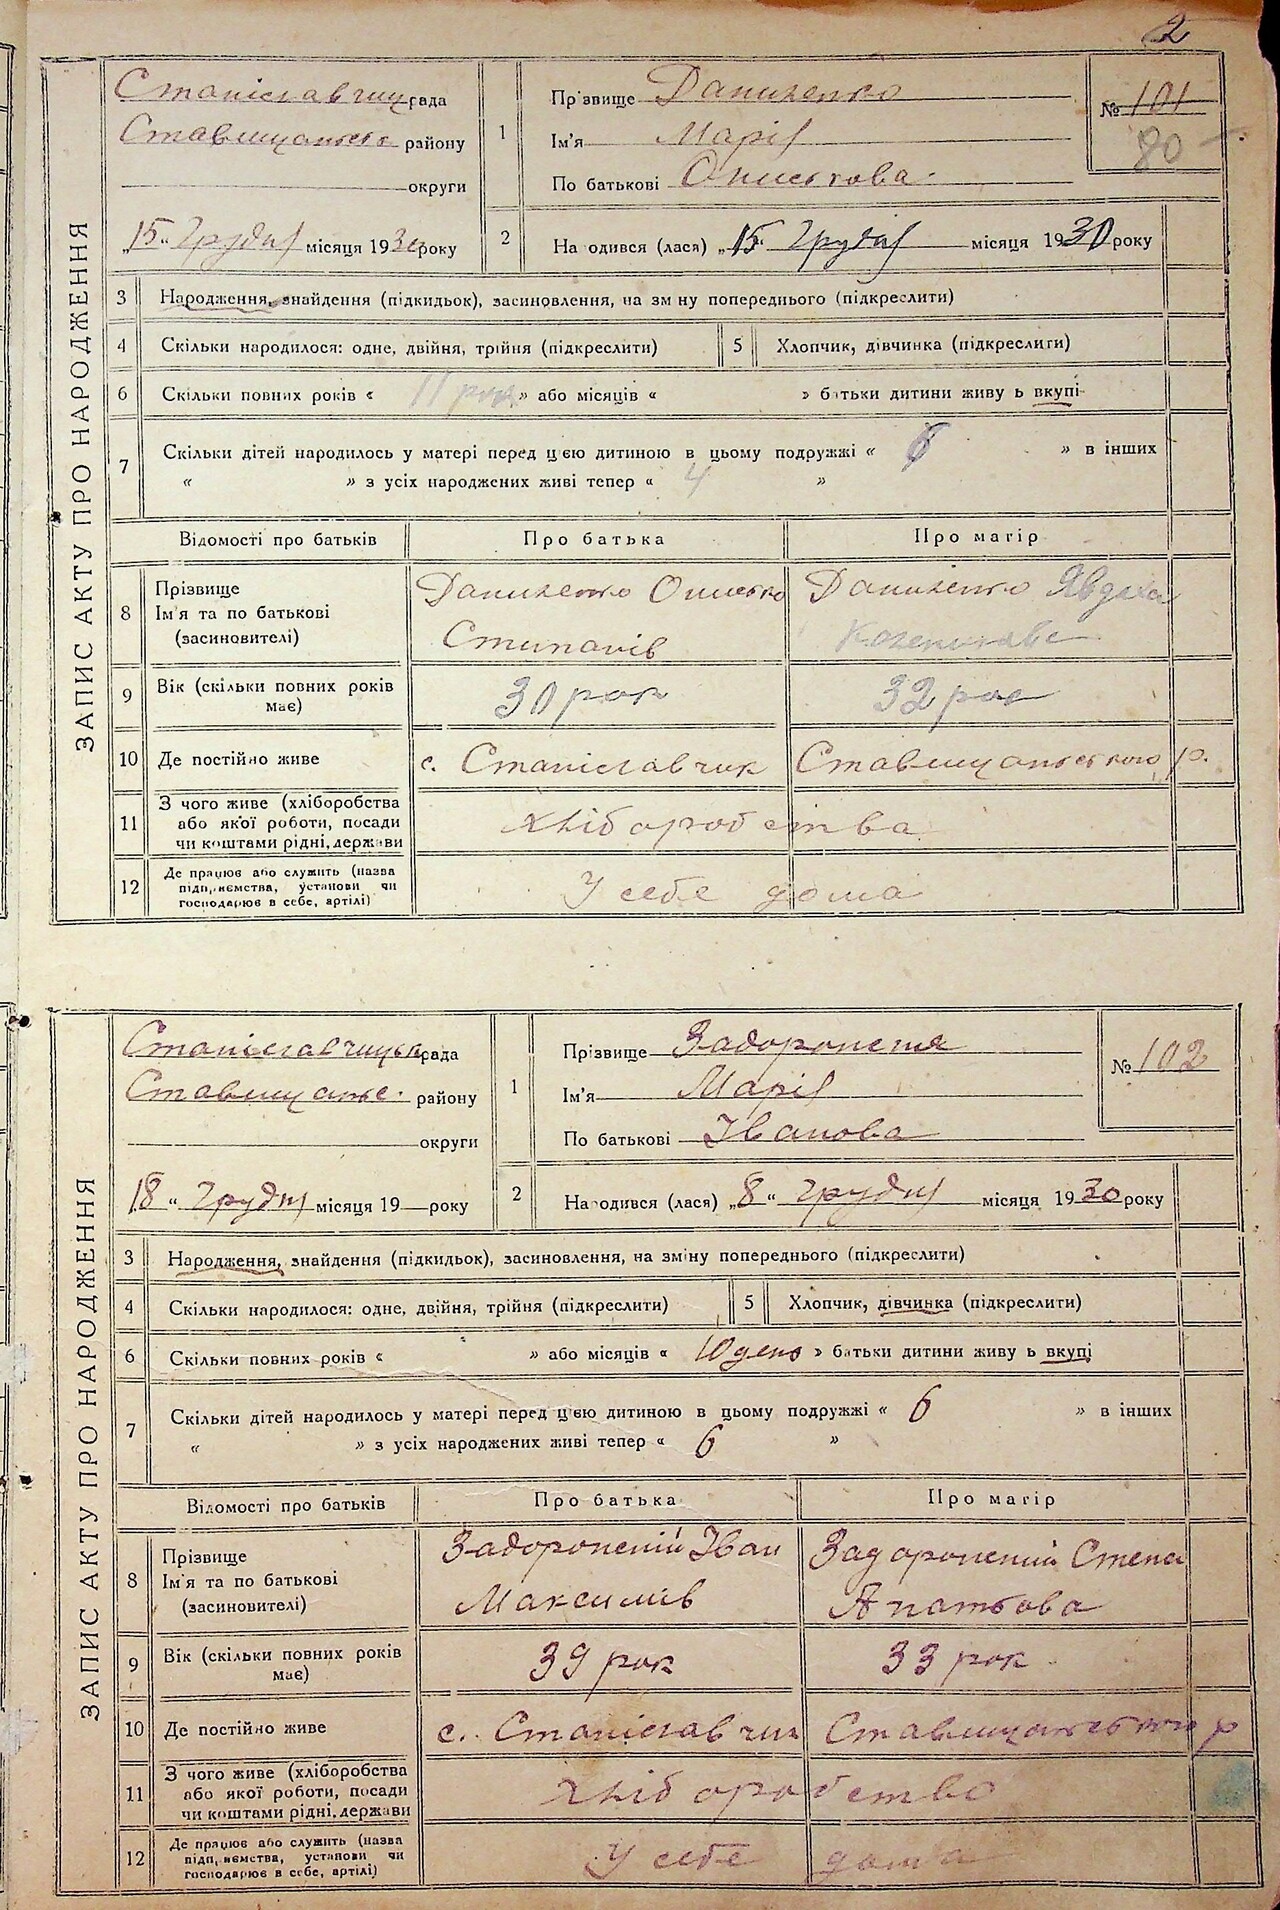 2
ЗАПИС АКТУ ПРО НАРОДЖЕННЯ
Станіславчиц рада
Ставищанськ району
округи
„15“ Грудня місяця 1930 року
1
Прізвище Даниленко
Ім'я Марія
По батькові Ониськова
№ 101
80
2
На одився (лася) „15“ Грудня місяця 1930 року
3 Народження, знайдення (підкидьок), засиновлення, на зм ну попереднього (підкреслити)
4 Скільки народилося: одне, двійня, трійня (підкреслити)
5 Хлопчик, дівчинка (підкреслити)
6 Скільки повних років « 11 рок » або місяців « » батьки дитини живу ь вкупі
7 Скільки дітей народилось у матері перед цією дитиною в цьому подружжі « 6 » в інших
« » з усіх народжених живі тепер « 4 »
Відомості про батьків Про батька Про матір
8 Прізвище Ім'я та по батькові (засиновителі)
Даниленко Онисько
Степанів
Даниленко Явдоха
9 Вік (скільки повних років має) 30 рок 32 рок
10 Де постійно живе с. Станіславчик Ставищанського р.
11 З чого живе (хліборобства
або якої роботи, посади
чи коштами рідні, держави
хліборобства
12 Де працює або служить (назва
підприємства, установи чи
господарює в себе, артілі)
У себе дома
ЗАПИС АКТУ ПРО НАРОДЖЕННЯ
Станіславчицька рада
Ставищанс. району
округи
18 “ Грудня місяця 19 року
1
Прізвище Задорожня
Ім'я Марія
По батькові Іванова
№ 102
2
Народився (лася) „8“ Грудня місяця 1930 року
3 Народження, знайдення (підкидьок), засиновлення, на зміну попереднього (підкреслити)
4 Скільки народилося: одне, двійня, трійня (підкреслити)
5 Хлопчик, дівчинка (підкреслити)
6 Скільки повних років « » або місяців « 10 день » батьки дитини живу ь вкупі
7 Скільки дітей народилось у матері перед цією дитиною в цьому подружжі « 6 » в інших
« » з усіх народжених живі тепер « 6 »
Відомості про батьків Про батька Про матір
8 Прізвище Ім'я та по батькові (засиновителі)
Задорожній Іван
Максимів
Задорожній Степа
9 Вік (скільки повних років має) 39 рок 33 рок
10 Де постійно живе с. Станіславчик Ставищанського р
11 З чого живе (хліборобства
або якої роботи, посади
чи коштами рідні, держави
хліборобство
12 Де працює або служить (назва
підприємства, установи чи
господарює в себе, артілі)
У себе дома